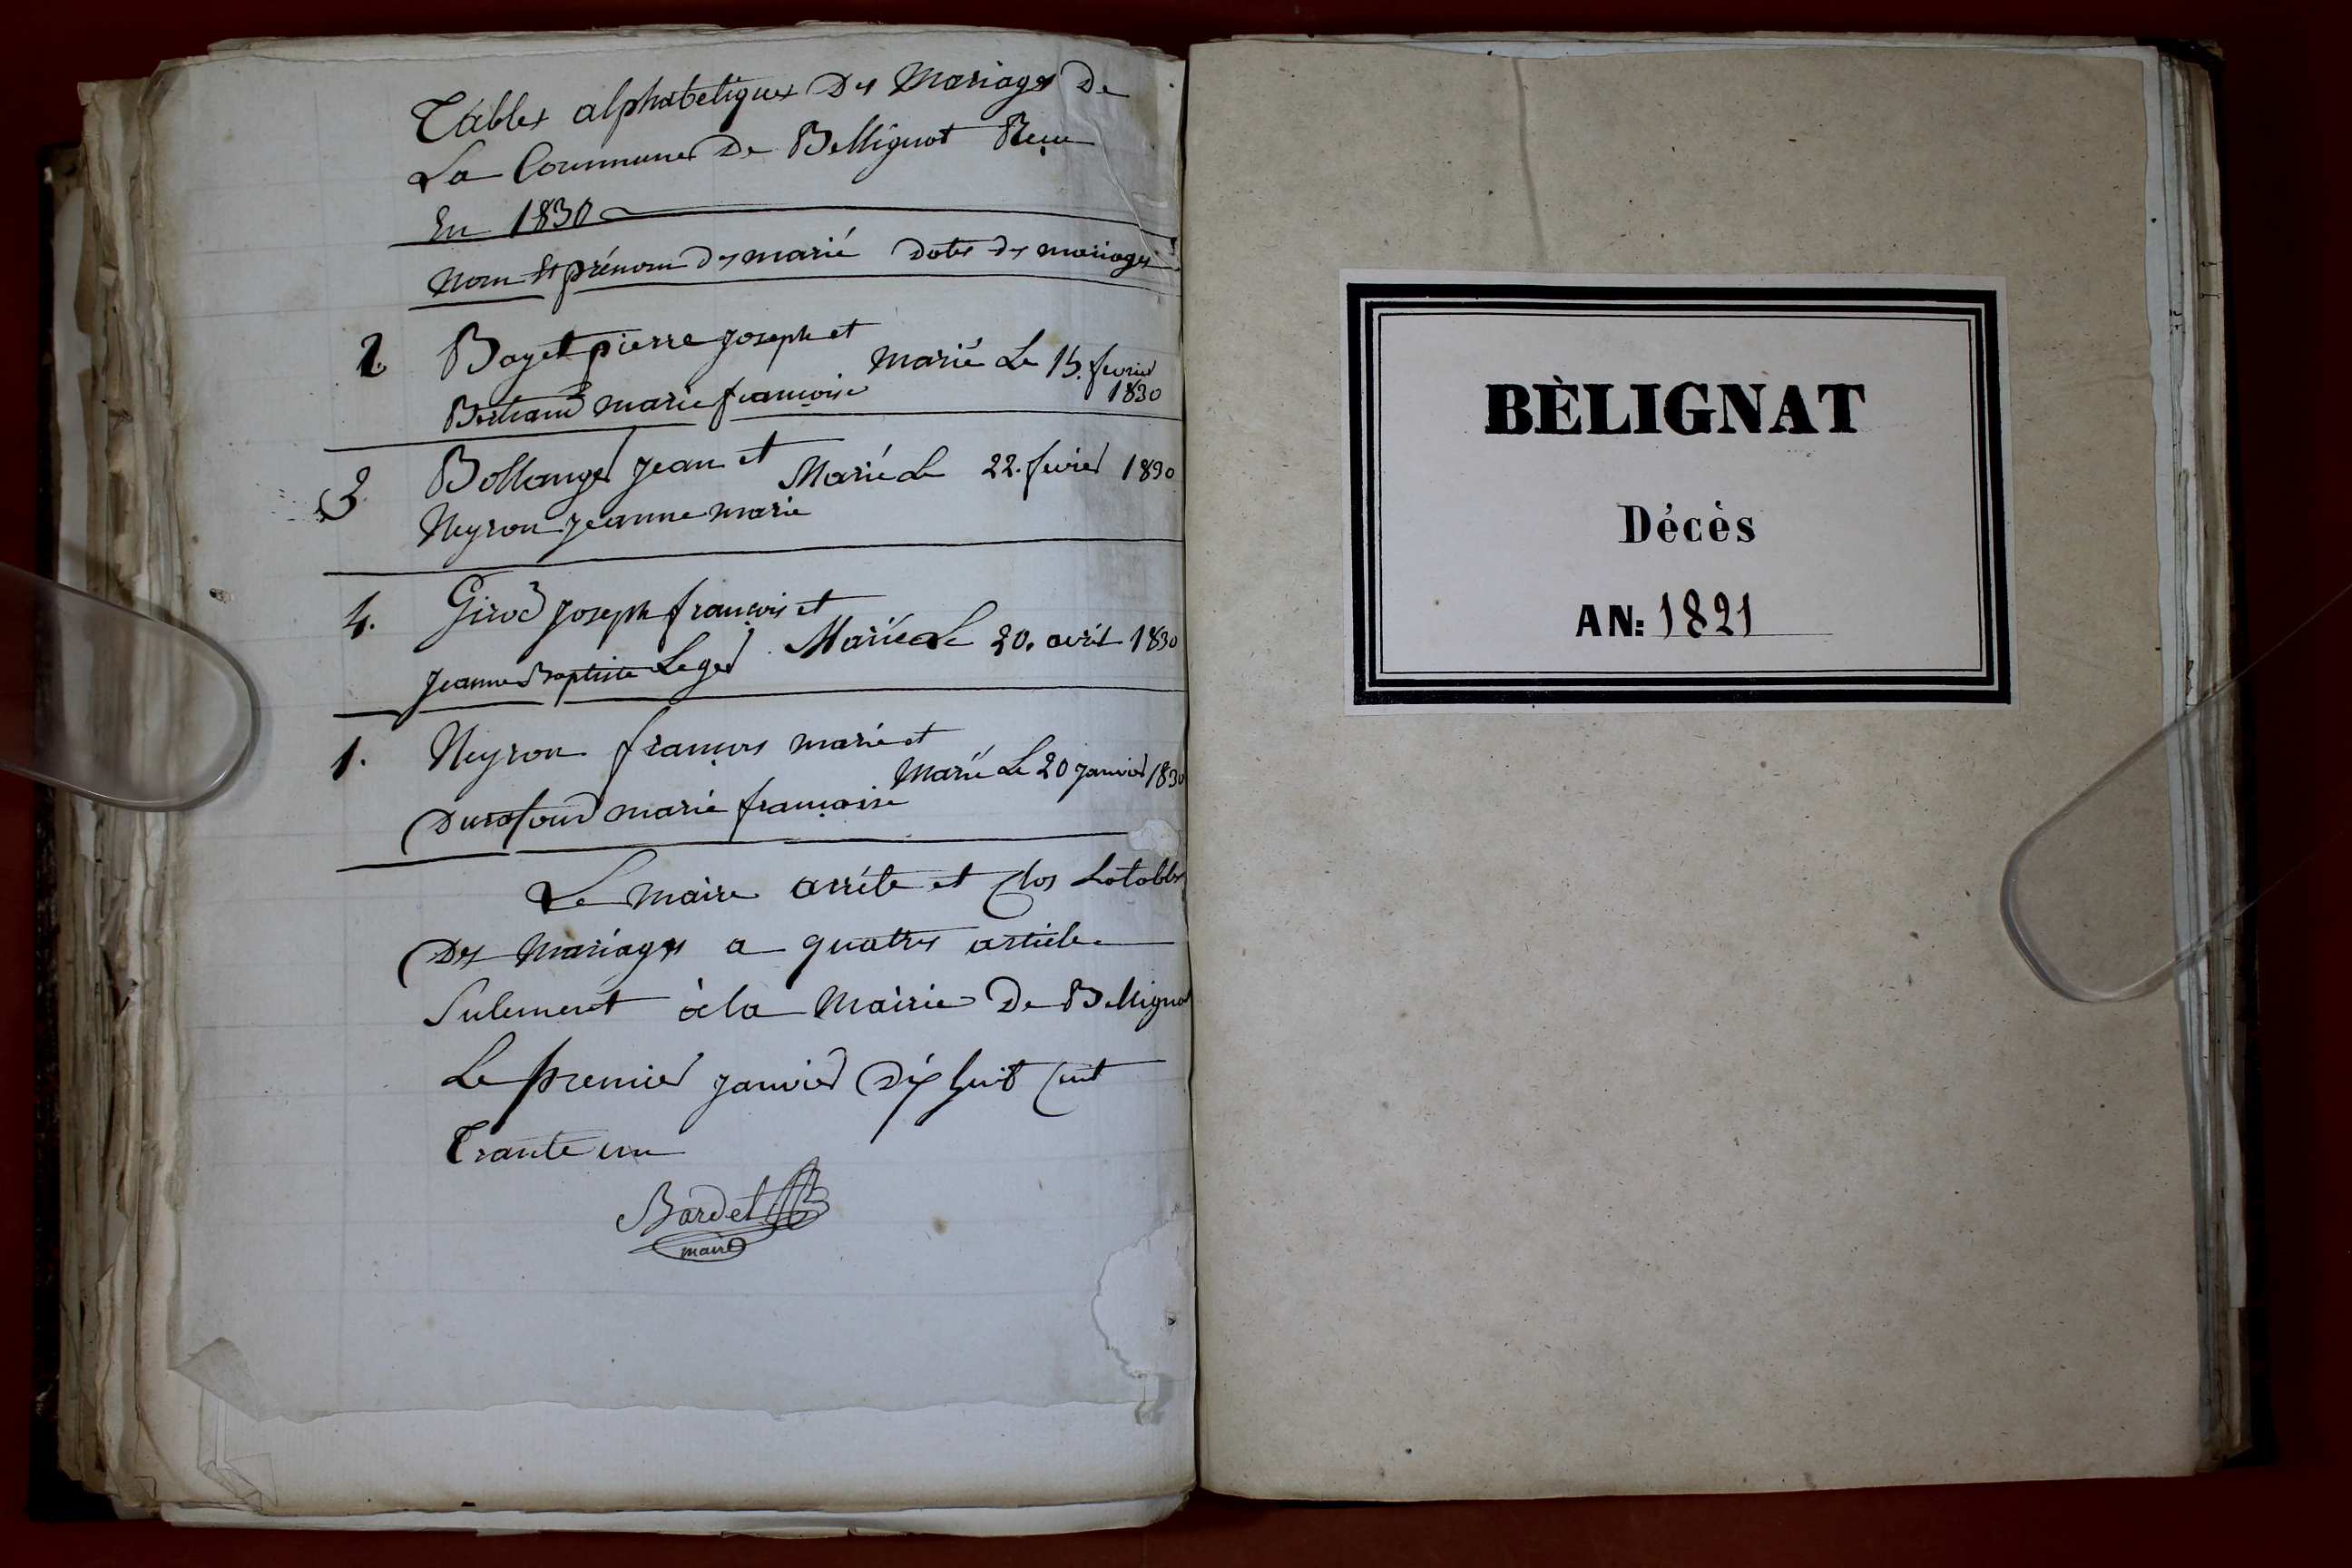 Tables alphabetiques Des Mariages De
La Commune De Bellignat Reçu
En 1830
Nom Et prénom des marié Dates des mariages
2. Bayet pierre joseph et
Bertrand marie françoise
Marié Le 15. fevrier
1830
3. Bollanger jean et
Neyron jeanne marie
Marié Le 22. fevrier 1830
4. Girod joseph françois et
jeanne Baptiste Leger
Marié Le 20. avril 1830
1. Neyron françois marie et
Durafour marie françoise
Marié Le 20 janvier 1830
Le maire arrête et Clos La table
Des Mariages a quatres article
Sulement à la Mairie De Bellignat
Le premier janvier Dix huit Cent
Trante un
Bardet
maire
BÈLIGNAT
Décès
AN: 1821